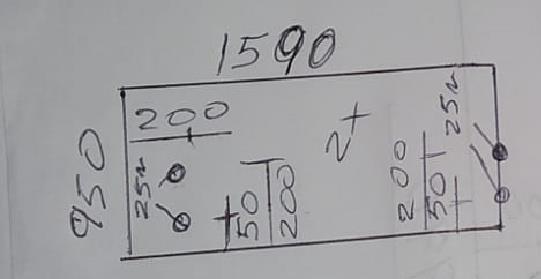 1590
950
200
25
50
200
2+
200
50
25